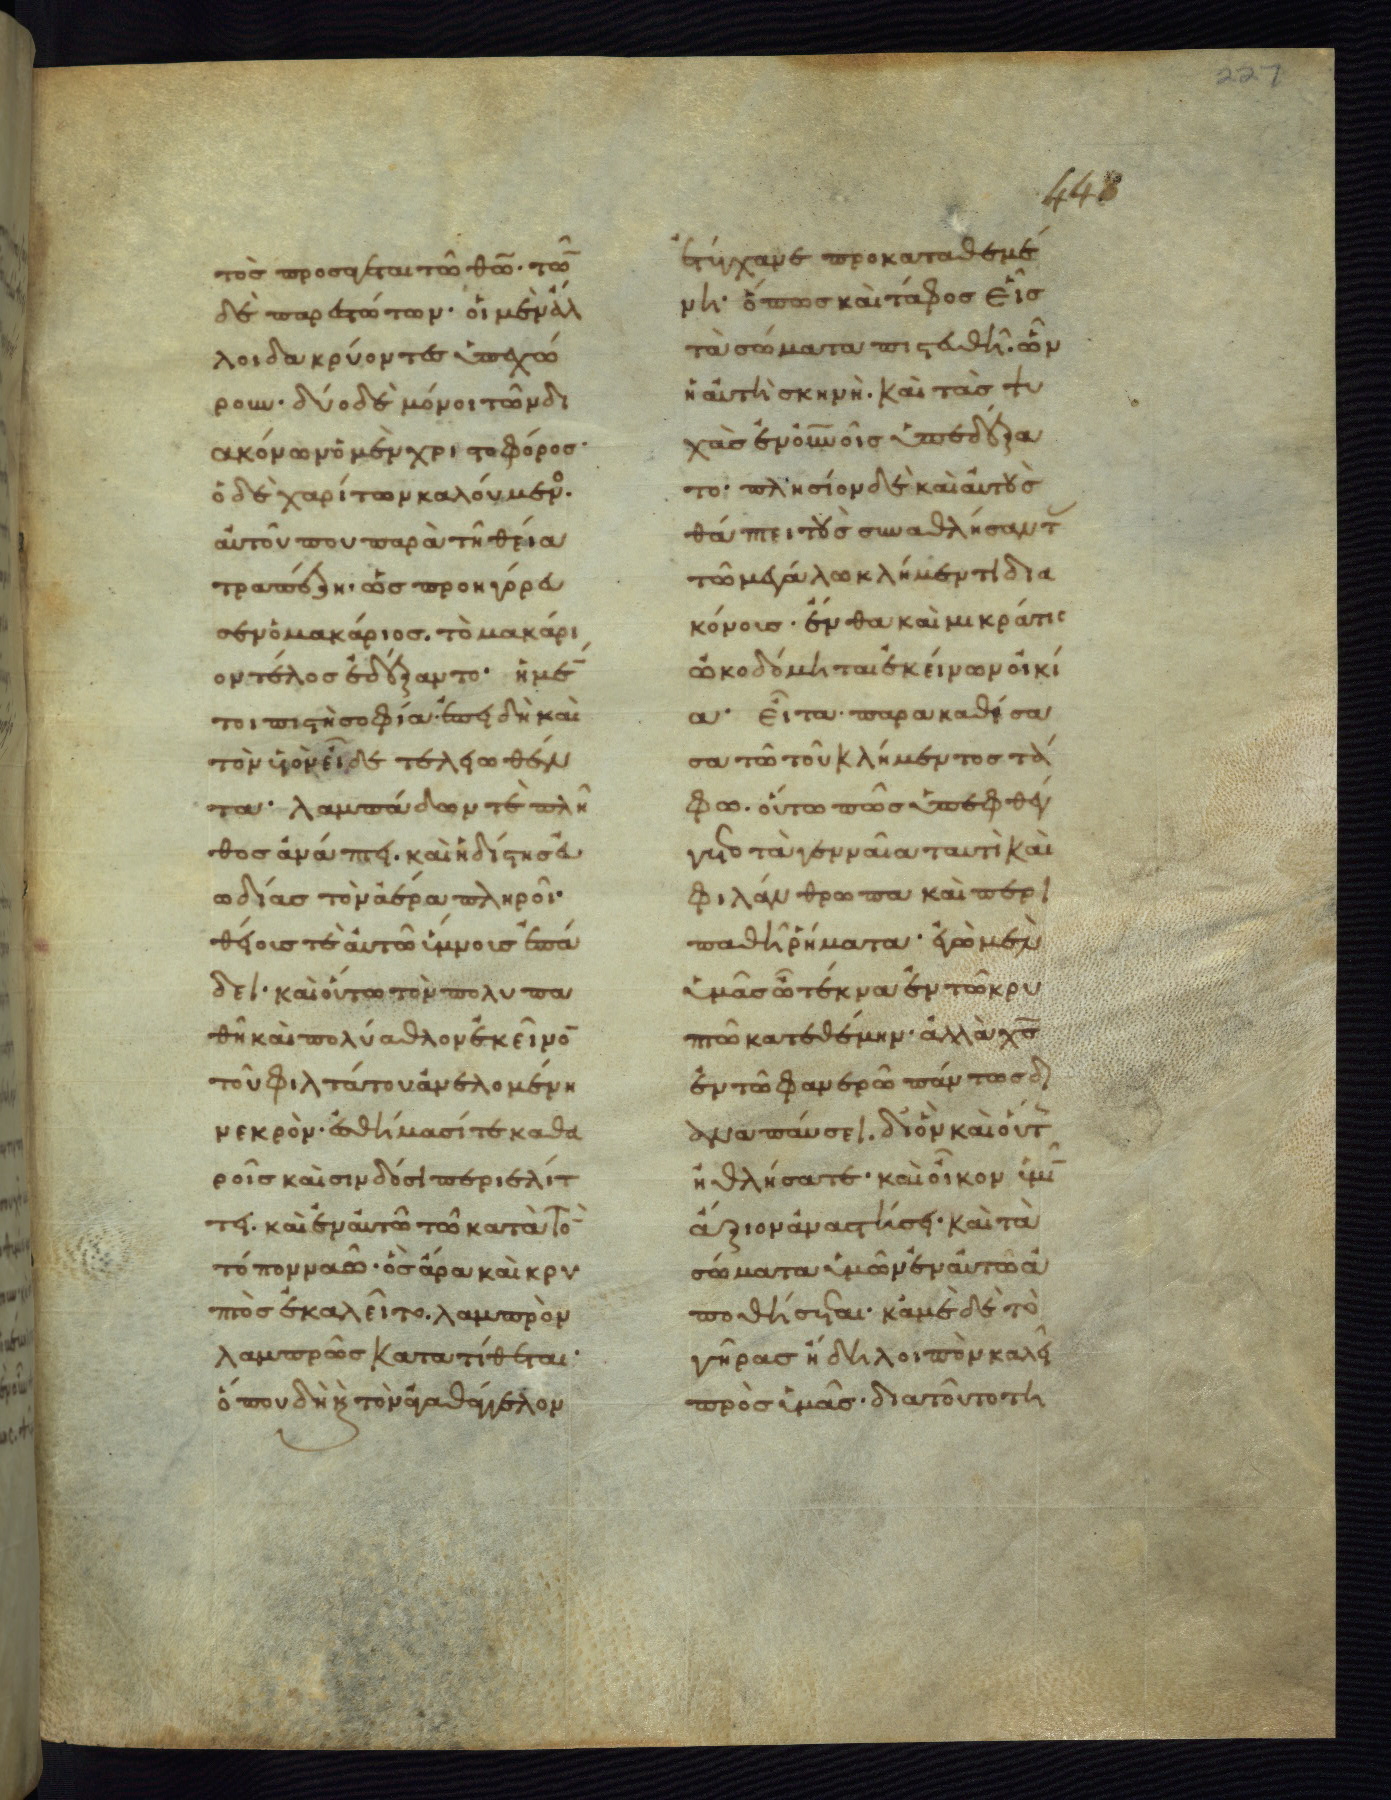 227
448
τος προσάγεται τῶ θῶ· τῶν
δὲ παρεστώτων· οἱ μὲν ἄλ
λοι δακρύοντες ὑπεχώ
ρουν· δύο δὲ μόνοι τῶν δι
ακόνων ὁ μὲν χριστοφόρος·
ὁ δὲ χαρίτων καλούμενος·
αὐτοῦ που παρὰ τῆ θεία
τραπέζη· ὡς προηγόρευ
σεν ὁ μακάριος. τὸ μακάρι
ον τέλος ἐδέξαντο· ἡ μέν
τοι πιστὴ σοφία· ἐπειδὴ καὶ
τὸν υἱὸν εἶδε τελειωθέν
τα· λαμπάδων τὲ πλῆ
θος ἀνάπτει. καὶ ἡδίστης εὐ
ωδίας τὸν ἀέρα πληροῖ·
θείοις τὲ αὐτῶ ὕμνοις ἐπά
δει· καὶ οὕτω τὸν πολυπα
θῆ καὶ πολύαθλον ἐκεῖνον
τοῦ φιλτάτου ἀνελομένη
νεκρὸν· ἐσθήμασί τε καθα
ροῖς καὶ σινδόσι περιελίτ
τει. καὶ ἐν αὐτῶ τῶ κατὰ τὸν
τόπον ναῶ· ὃς ἄρα καὶ κρυ
πτὸς ἐκαλεῖτο. λαμπρὸν
λαμπρῶς κατατίθεται·
ὅπου δὴ καὶ τὸν ἀγαθάγγελον
ἐτύγχανε προκαταθεμέ
νη· ὅπως καὶ τάφος εἷς
τὰ σώματα πιστευθῆ· ὧν
ἡ αὐτὴ σκηνὴ. καὶ τὰς ψυ
χὰς ἐν οὐνοῖς ὑπεδέξα
το· πλησίον δὲ καὶ αὐτοὺς
θάπτει τοὺς συναθλήσαντας
τῶ μεγάλω κλήμεντι δια
κόνοις· ἔνθα καὶ μικρά τις
ὠκοδόμηται ἐκείνων οἰκί
α· εἶτα παρακαθίσα
σα τῶ τοῦ κλήμεντος τά
φω. οὕτω πῶς ὑπεφθέγ
γετο τὰ γενναῖα ταυτὶ καὶ
φιλάνθρωπα καὶ περι
παθῆ ῥήματα· ἐγὼ μὲν
ὑμᾶς ὦ τέκνα ἐν τῶ κρυ
πτῶ κατεθέμην· ἀλλὰ χς
ἐν τῶ φανερῶ πάντως δι
αναπαύσει. δι' ὃν καὶ οὕτως
ἠθλήσατε· καὶ οἶκον ὑμῖν
ἄξιον ἀναστήσει· καὶ τὰ
σώματα ὑμῶν ἐν αὐτῶ ἀ
ποθήσεται· κἀμὲ δὲ τὸ
γῆρας ἤδη λοιπὸν καλεῖ
πρὸς ὑμᾶς· διὰ τοῦτο τῆ